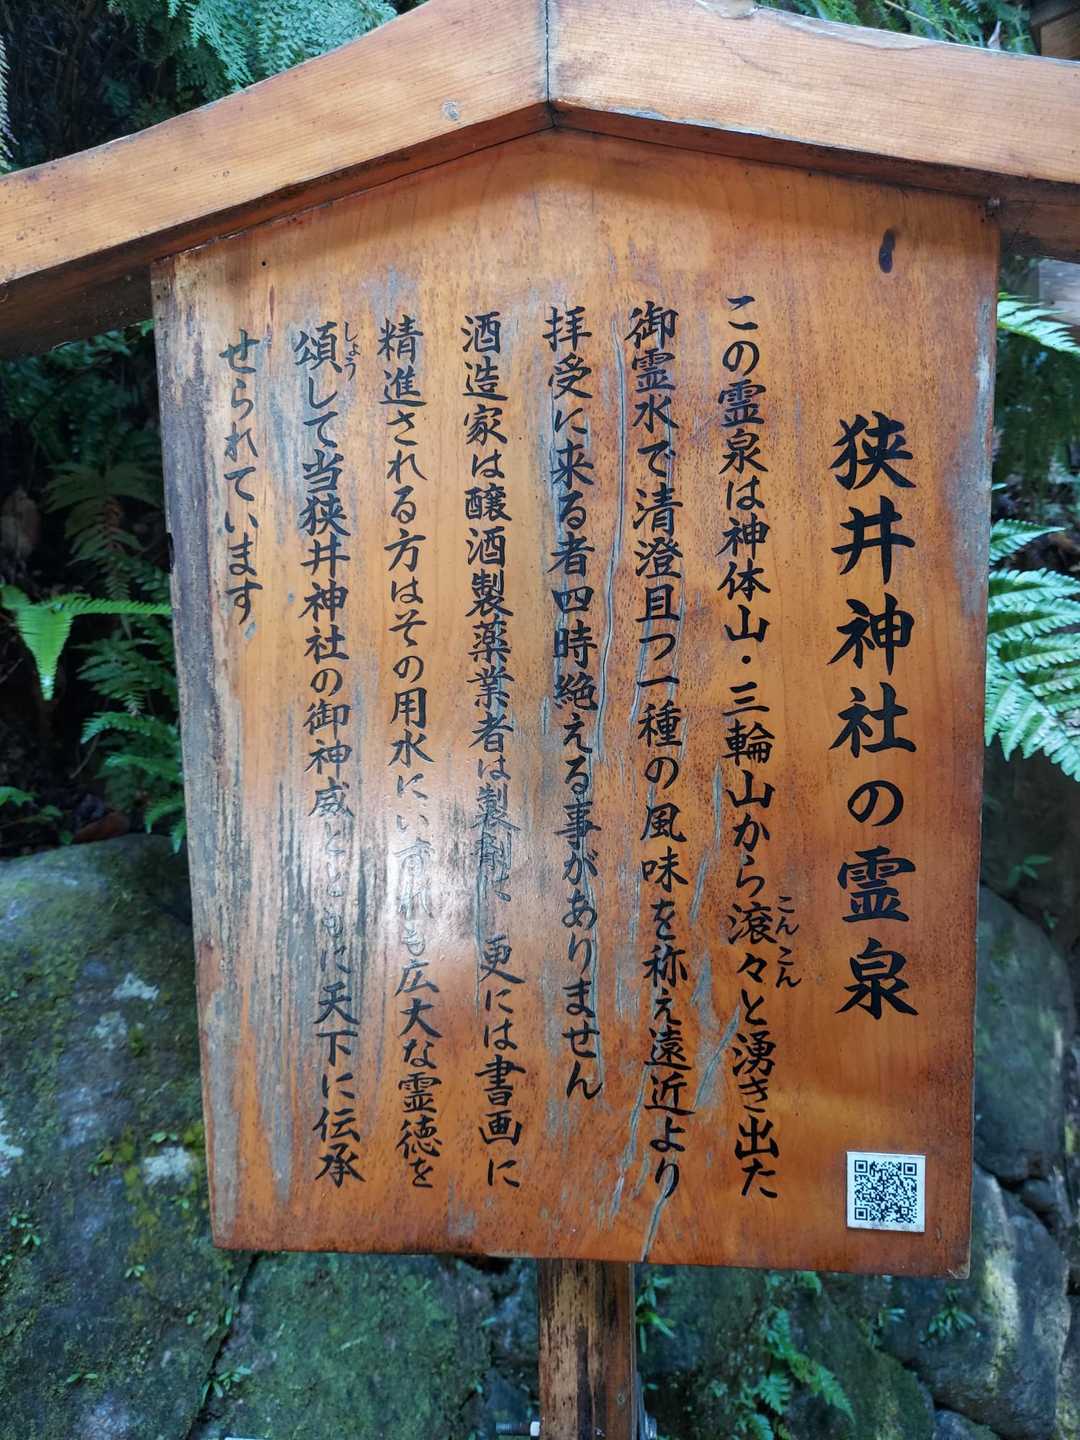 狭井神社の霊泉
この霊泉は神体山・三輪山から滾々と湧き出た
こんこん
御霊水で清澄且つ一種の風味を称え遠近より
拝受に来る者四時絶える事がありません
酒造家は醸酒製薬業者は製剤に、更には書画に
精進される方はその用水にいずれも広大な霊徳を
頌して当狭井神社の御神威とともに天下に伝承
しょう
せられています。